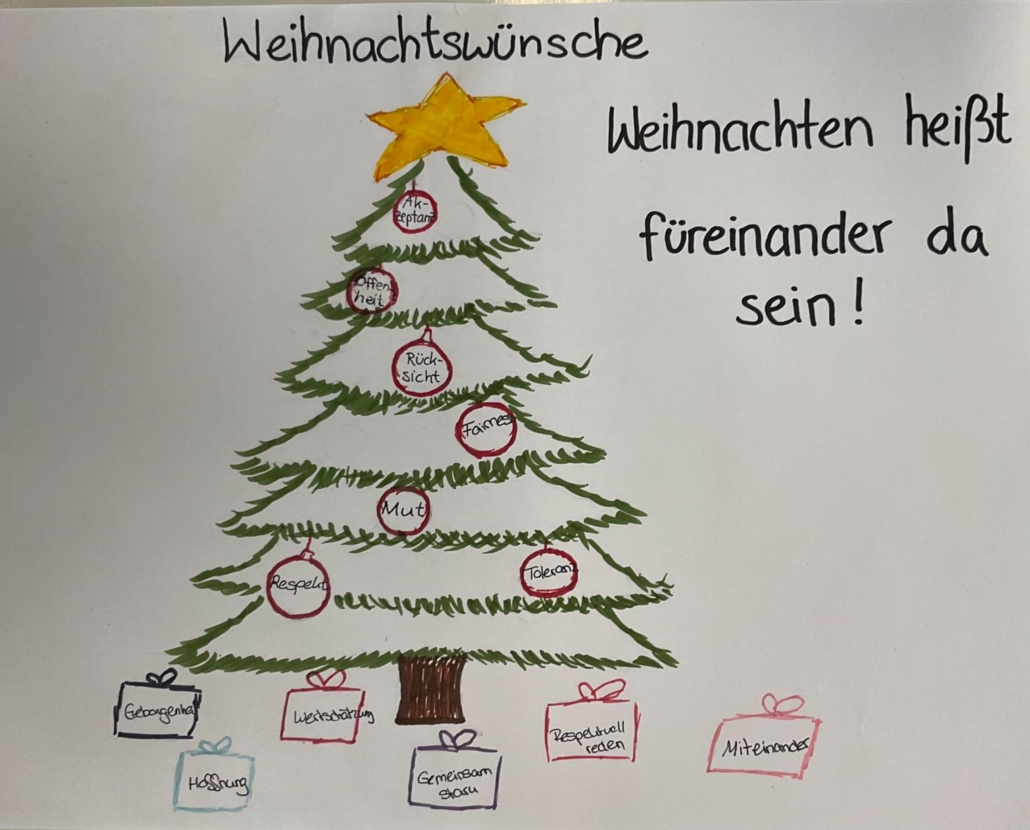 Weihnachtswünsche
Weihnachten heißt
füreinander da
sein!
Ak-
zeptanz
Offen
heit
Rück-
sicht
Fairness
Mut
Respekt
Toleranz
Geborgenheit
Wertschätzung
Respektvoll
reden
Miteinander
Hoffnung
Gemeinsam